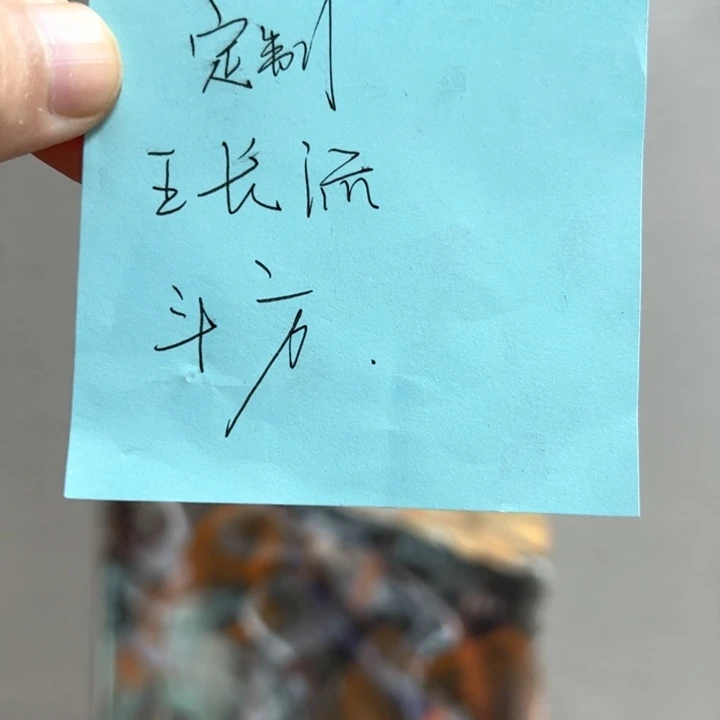 定制
王长流
斗方.